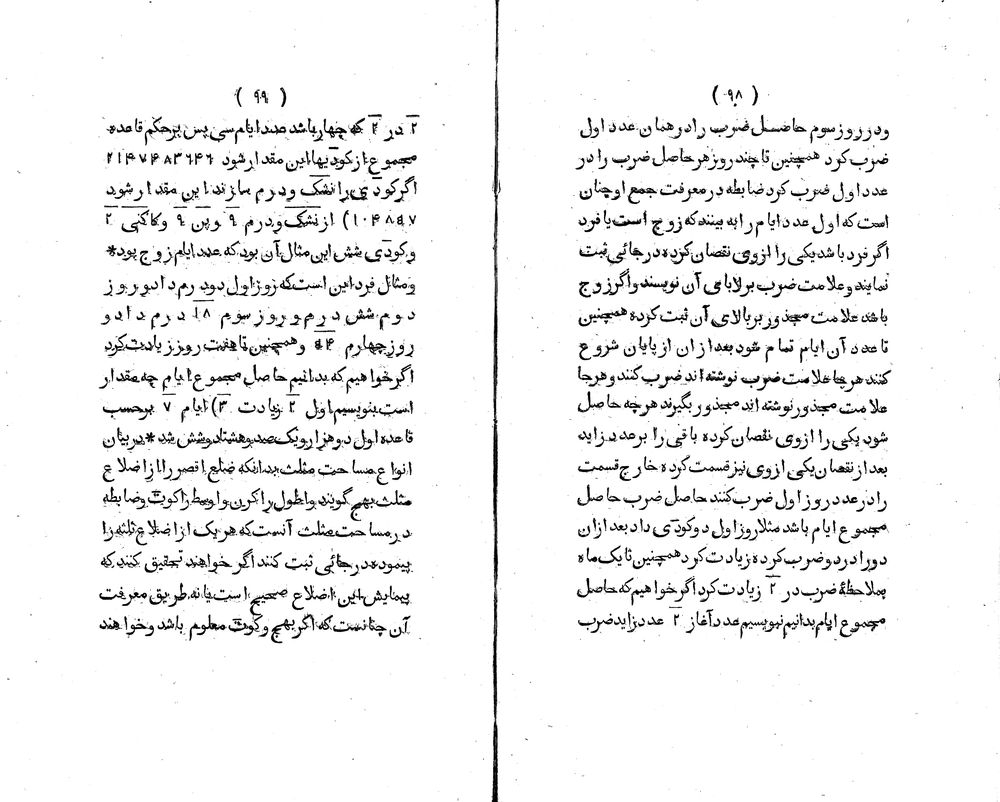 ( ۹۸ )
ودر روز سوم حاصل ضرب را در همان عدد اول
ضرب کرد همچنین تا چند روز هر حاصل ضرب را در
عدد اول ضرب کرد ضابطه در معرفت جمع او چنان
است که اول عدد ایام را به بینند که زوج است یا فرد
اگر فرد باشد یکی را ازوی نقصان کرده در جائی ثبت
نمایند و علامت ضرب بر لابامی آن نویسند واگر زوج
باشد علامت مجذور بر بالای آن ثبت کرده همچنین
تا عدد آن ایام تمام شود بعد از ان از پایان شروع
کنند هر جا علامت ضرب نوشته اند ضرب کنند و هر جا
علامت مجذور نوشته اند مجذور بگیرند هر چه حاصل
شود یکی را ازوی نقصان کرده باقی را بر عدد زاید
بعد از نقصان یکی ازوی نیز قسمت کرده خارج قسمت
را در عدد روز اول ضرب کنند حاصل ضرب حاصل
مجموع ایام باشد مثلا روز اول دو کودی داد بعد از ان
دو را در دو ضرب کرده زیادت کرد همچنین تا یک ماه
بملاحظهٔ ضرب در ۲ زیادت کرد اگر خواهیم که حاصل
مجموع ایام بدانیم نبویسیم عدد آغاز ۲ عدد زاید ضرب
( ۹۹ )
۲ در ۲ که چهار باشد عدد ایام سی پس بر حکم قاعده
مجموع از کودیها این مقدار شود ۲۱۴۷۴۸۳۶۴۶
اگر کودی را نشک ودرم سازند این مقدار شود
۱۰۴۸۵۷) از نشک ودرم ۹ وپن ۹ وکاکنی ۲
وکودی شش این مثال آن بود که عدد ایام زوج بود*
ومثال فرد این است که روز اول دو درم داد و روز
دوم شش درم و روز سوم ۱۸ درم داد و
روز چهارم ۵۴ وهمچنین تا هفت روز زیادت کرد
اگر خواهیم که بدانیم حاصل مجموع ایام چه مقدار
است بنویسیم اول ۲ زیادت ۳) ایام ۷ بر حسب
قاعده اول دو هزار و یک صد و هشتاد و شش شد * در بیان
انواع مساحت مثلث بدانکه ضلع اقصر را از اضلاع
مثلث بهج گویند واطول را کرن واوسط را کوت وضابطه
در مساحت مثلث آنست که هر یک از اضلاع ثلثه را
پیموده در جائی ثبت کنند اگر خواهند تحقیق کنند که
پیمایش این اضلاع صحیح است یا نه طریق معرفت
آن چنانست که اگر بهج وکوت معلوم باشد وخواهند